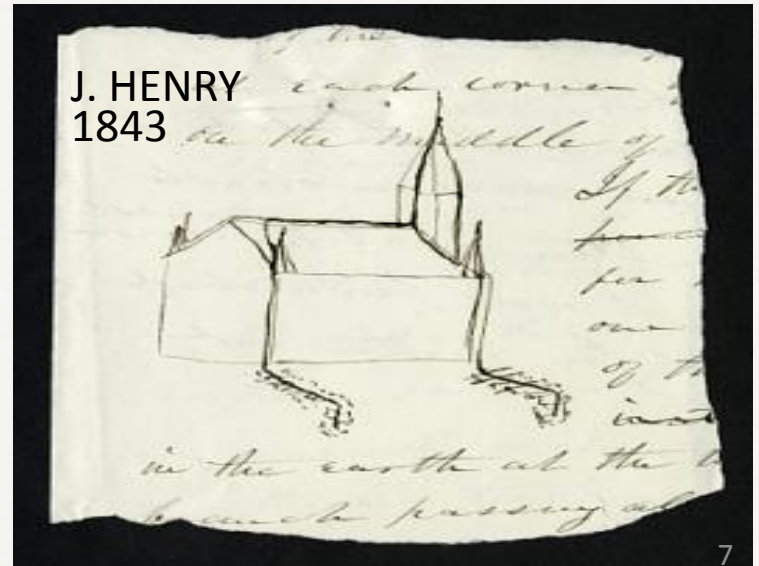 J. HENRY
1843
each corner
on the middle of
If th
for
one
of th
in the earth at the
branch passing al
7